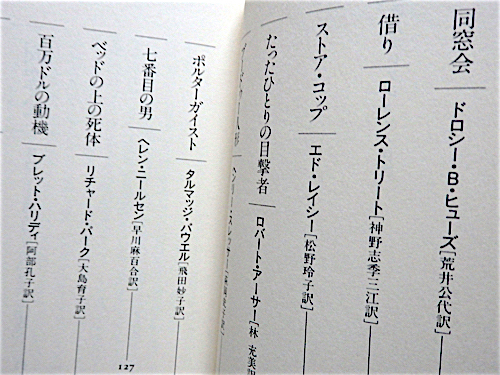 同窓会 ドロシー・B・ヒューズ[荒井公代訳]
借り ローレンス・トリート[神野志季三江訳]
ストア・コップ エド・レイシー[松野玲子訳]
たったひとりの目撃者 ロバート・アーサー[林 充美訳
ポルターガイスト タルマッジ・パウエル[飛田妙子訳]
七番目の男 ヘレン・ニールセン[早川麻百合訳]
ベッドの上の死体 リチャード・パーク[大島育子訳]
百万ドルの動機 ブレット・ハリディ[阿部孔子訳]
127